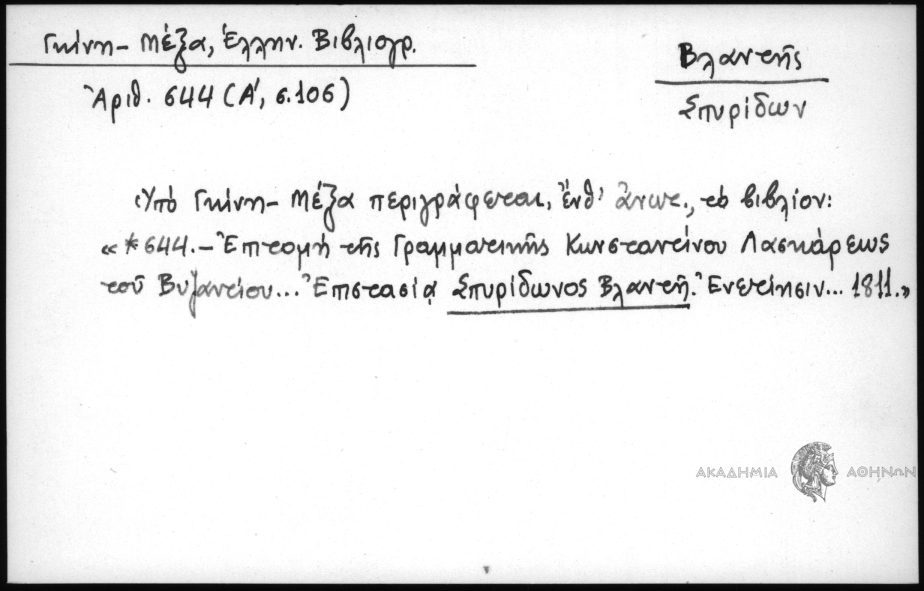 Γκίνη - Μέξα, Ἑλλην. Βιβλιογρ.
Ἀριθ. 644 (Α΄, σ. 106)
Βλαντῆς
Σπυρίδων
Ὑπὸ Γκίνη - Μέξα περιγράφεται, ἔνθ' ἄνωτ., τὸ βιβλίον:
« *644. - Ἐπιτομὴ τῆς Γραμματικῆς Κωνσταντίνου Λασκάρεως
τοῦ Βυζαντίου... Ἐπιστασίᾳ Σπυρίδωνος Βλαντῆ. Ἐνετίησιν... 1811.»
ΑΚΑΔΗΜΙΑ ΑΘΗΝΩΝ